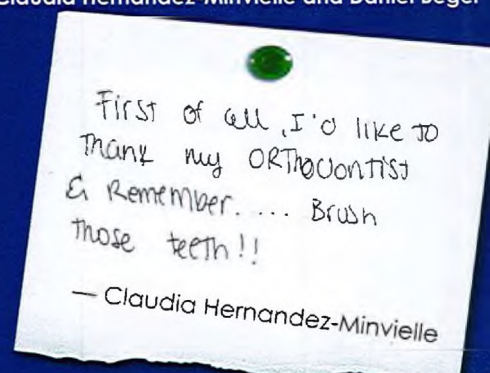 Claudia Hernandez-Minvielle and Daniel Beger
First of all, I'd like to
Thank my ORThodontist
& Remember.... Brush
those teeth!!
— Claudia Hernandez-Minvielle